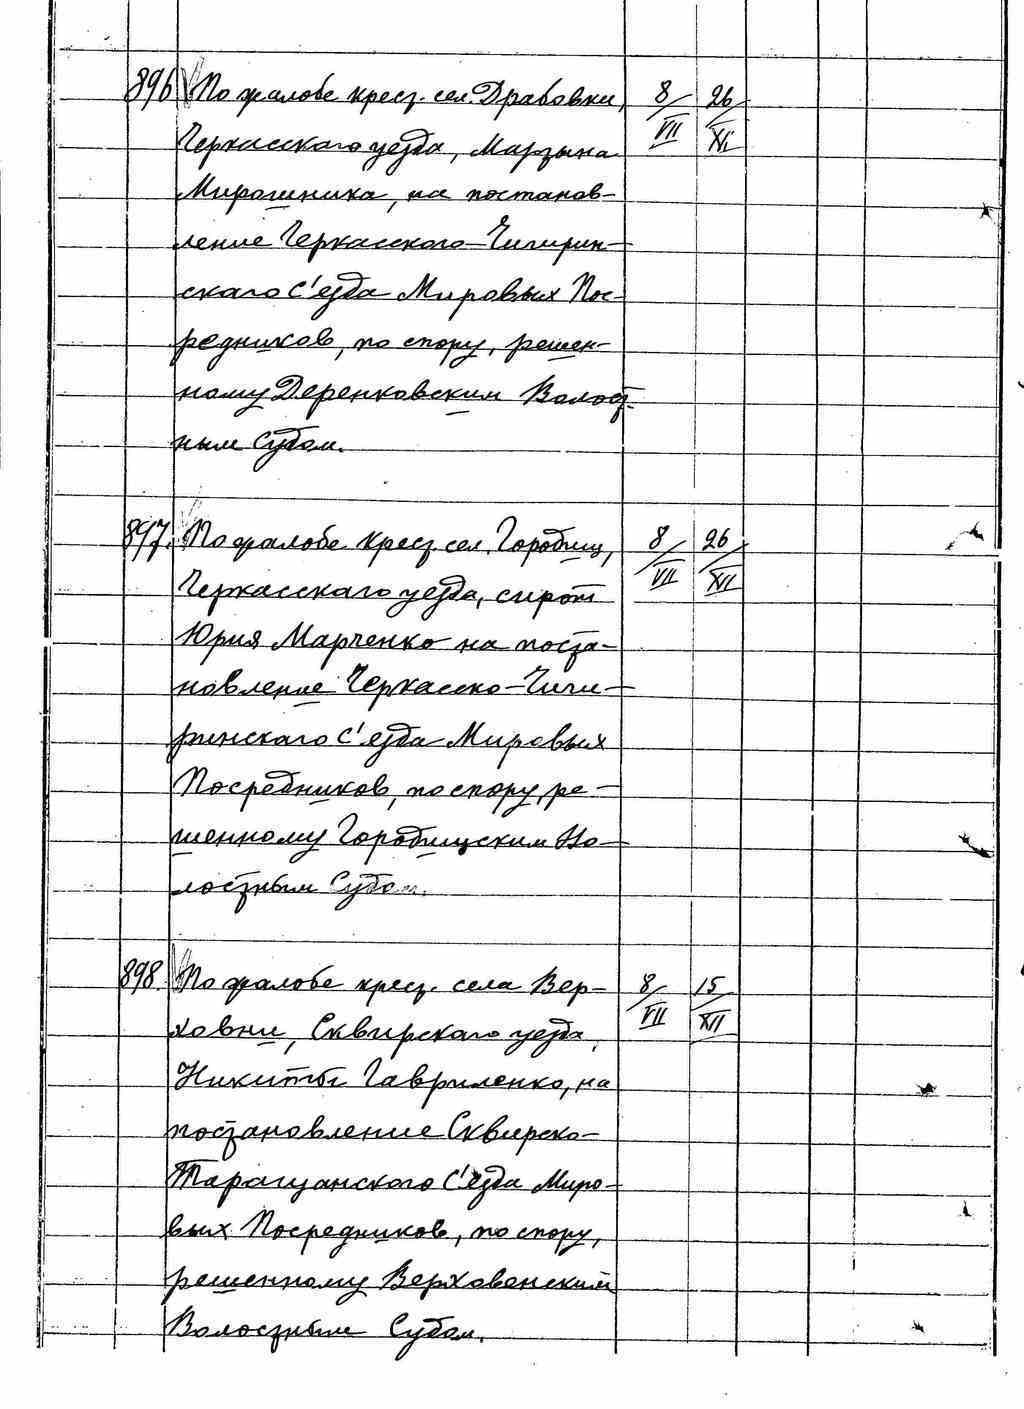 896 По жалобе крест. сел. Драбовки, 8/VII 26/XI
Черкасского уезда, Мартына
Мирошника, на постанов-
ление Черкасского-Чигирин-
скаго с'езда Мировых Пос-
редников, по спору, решен-
ному Деренковским Волост-
ным Судом.
897. По жалобе крест. сел. Городищ, 8/VII 26/XI
Черкасскаго уезда, сирот
Юрия Марченко на поста-
новление Черкасско-Чиги-
ринскаго с'езда Мировых
Посредников, по спору, ре-
шенному Городищским Во-
лостным Судом.
898. По жалобе крест. села Вер- 8/VII 15/XII
ховни, Сквирскаго уезда,
Никиты Гавриленко, на
постановление Сквирско-
Таращанского С'езда Миро-
вых Посредников, по спору,
решенному Верховенским
Волостным Судом.